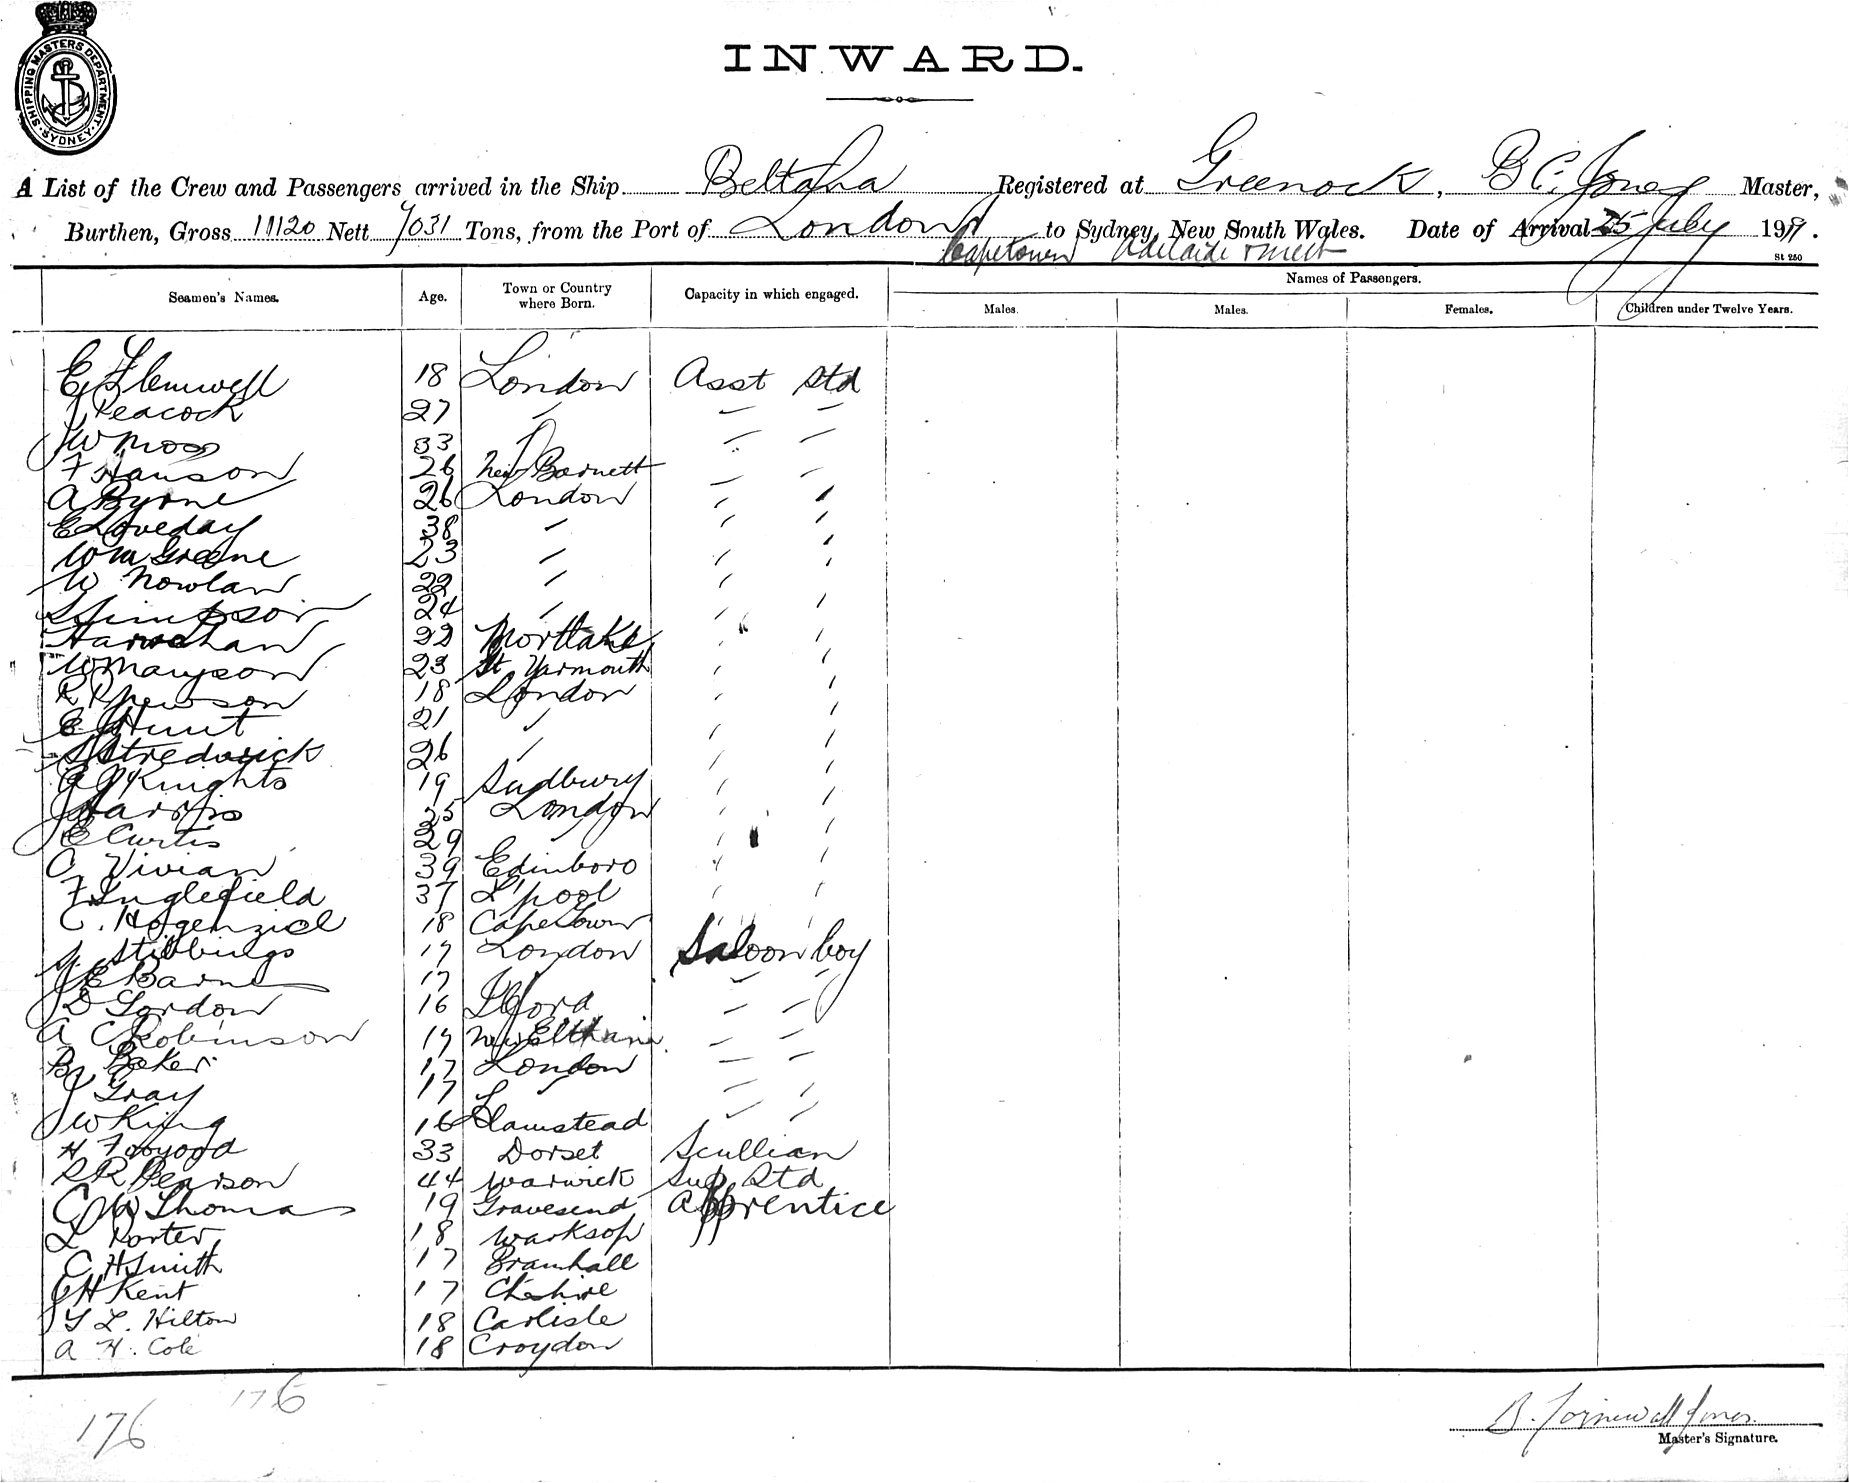 SHIPPING MASTERS DEPARTMENT · SYDNEY ·
INWARD.
A List of the Crew and Passengers arrived in the Ship Beltana Registered at Greenock, B C. Jones Master,
Burthen, Gross 11120 Nett 7031 Tons, from the Port of London to Sydney, New South Wales. Date of Arrival 25 July 19
Capetown Adelaide
St 250
Seamen's Names. Age. Town or Country where Born. Capacity in which engaged. Names of Passengers.
Males. Males. Females. Children under Twelve Years.
E Flemwell 18 London Asst Std
J Peacock 27 " " "
J W Moss 33 " " "
F Hanson 26 New Barnett " "
A Byrne 26 London " "
E Loveday 38 " " "
Wm Greene 23 " " "
W Nowlan 22 " " "
S Simpson 24 " " "
Hanrahan 22 Mortlake " "
W Manyson 23 Gt Yarmouth " "
R 18 London " "
E J Hunt 21 " " "
S Stredwick 26 " " "
Knights 19 Sudbury " "
J Harris 25 London " "
J E Curtis 29 " "
C. Vivian 39 Edinboro " "
F Inglefield 37 L'pool " "
C. Hogenziel 18 Capetown " "
Stibbings 17 London Saloon boy
J E Barnes 17 " " "
J D Gordon 16 Ilford " "
A C Robinson 17 New Eltham " "
B Baker 17 London " "
J Gray 17 " " "
J W King 16 Flamstead " "
H Foogood 33 Dorset Scullian
S R Pearson 44 Warwick Sup Std
C W Thomas 19 Gravesend Apprentice
L Porter 18 Warksop
C H Smith 17 Bramhall
J H Kent 17 Cheshire
G L. Hilton 18 Carlisle
A H. Cole 18 Croydon
176 176
B. Cornewall Jones.
Master's Signature.